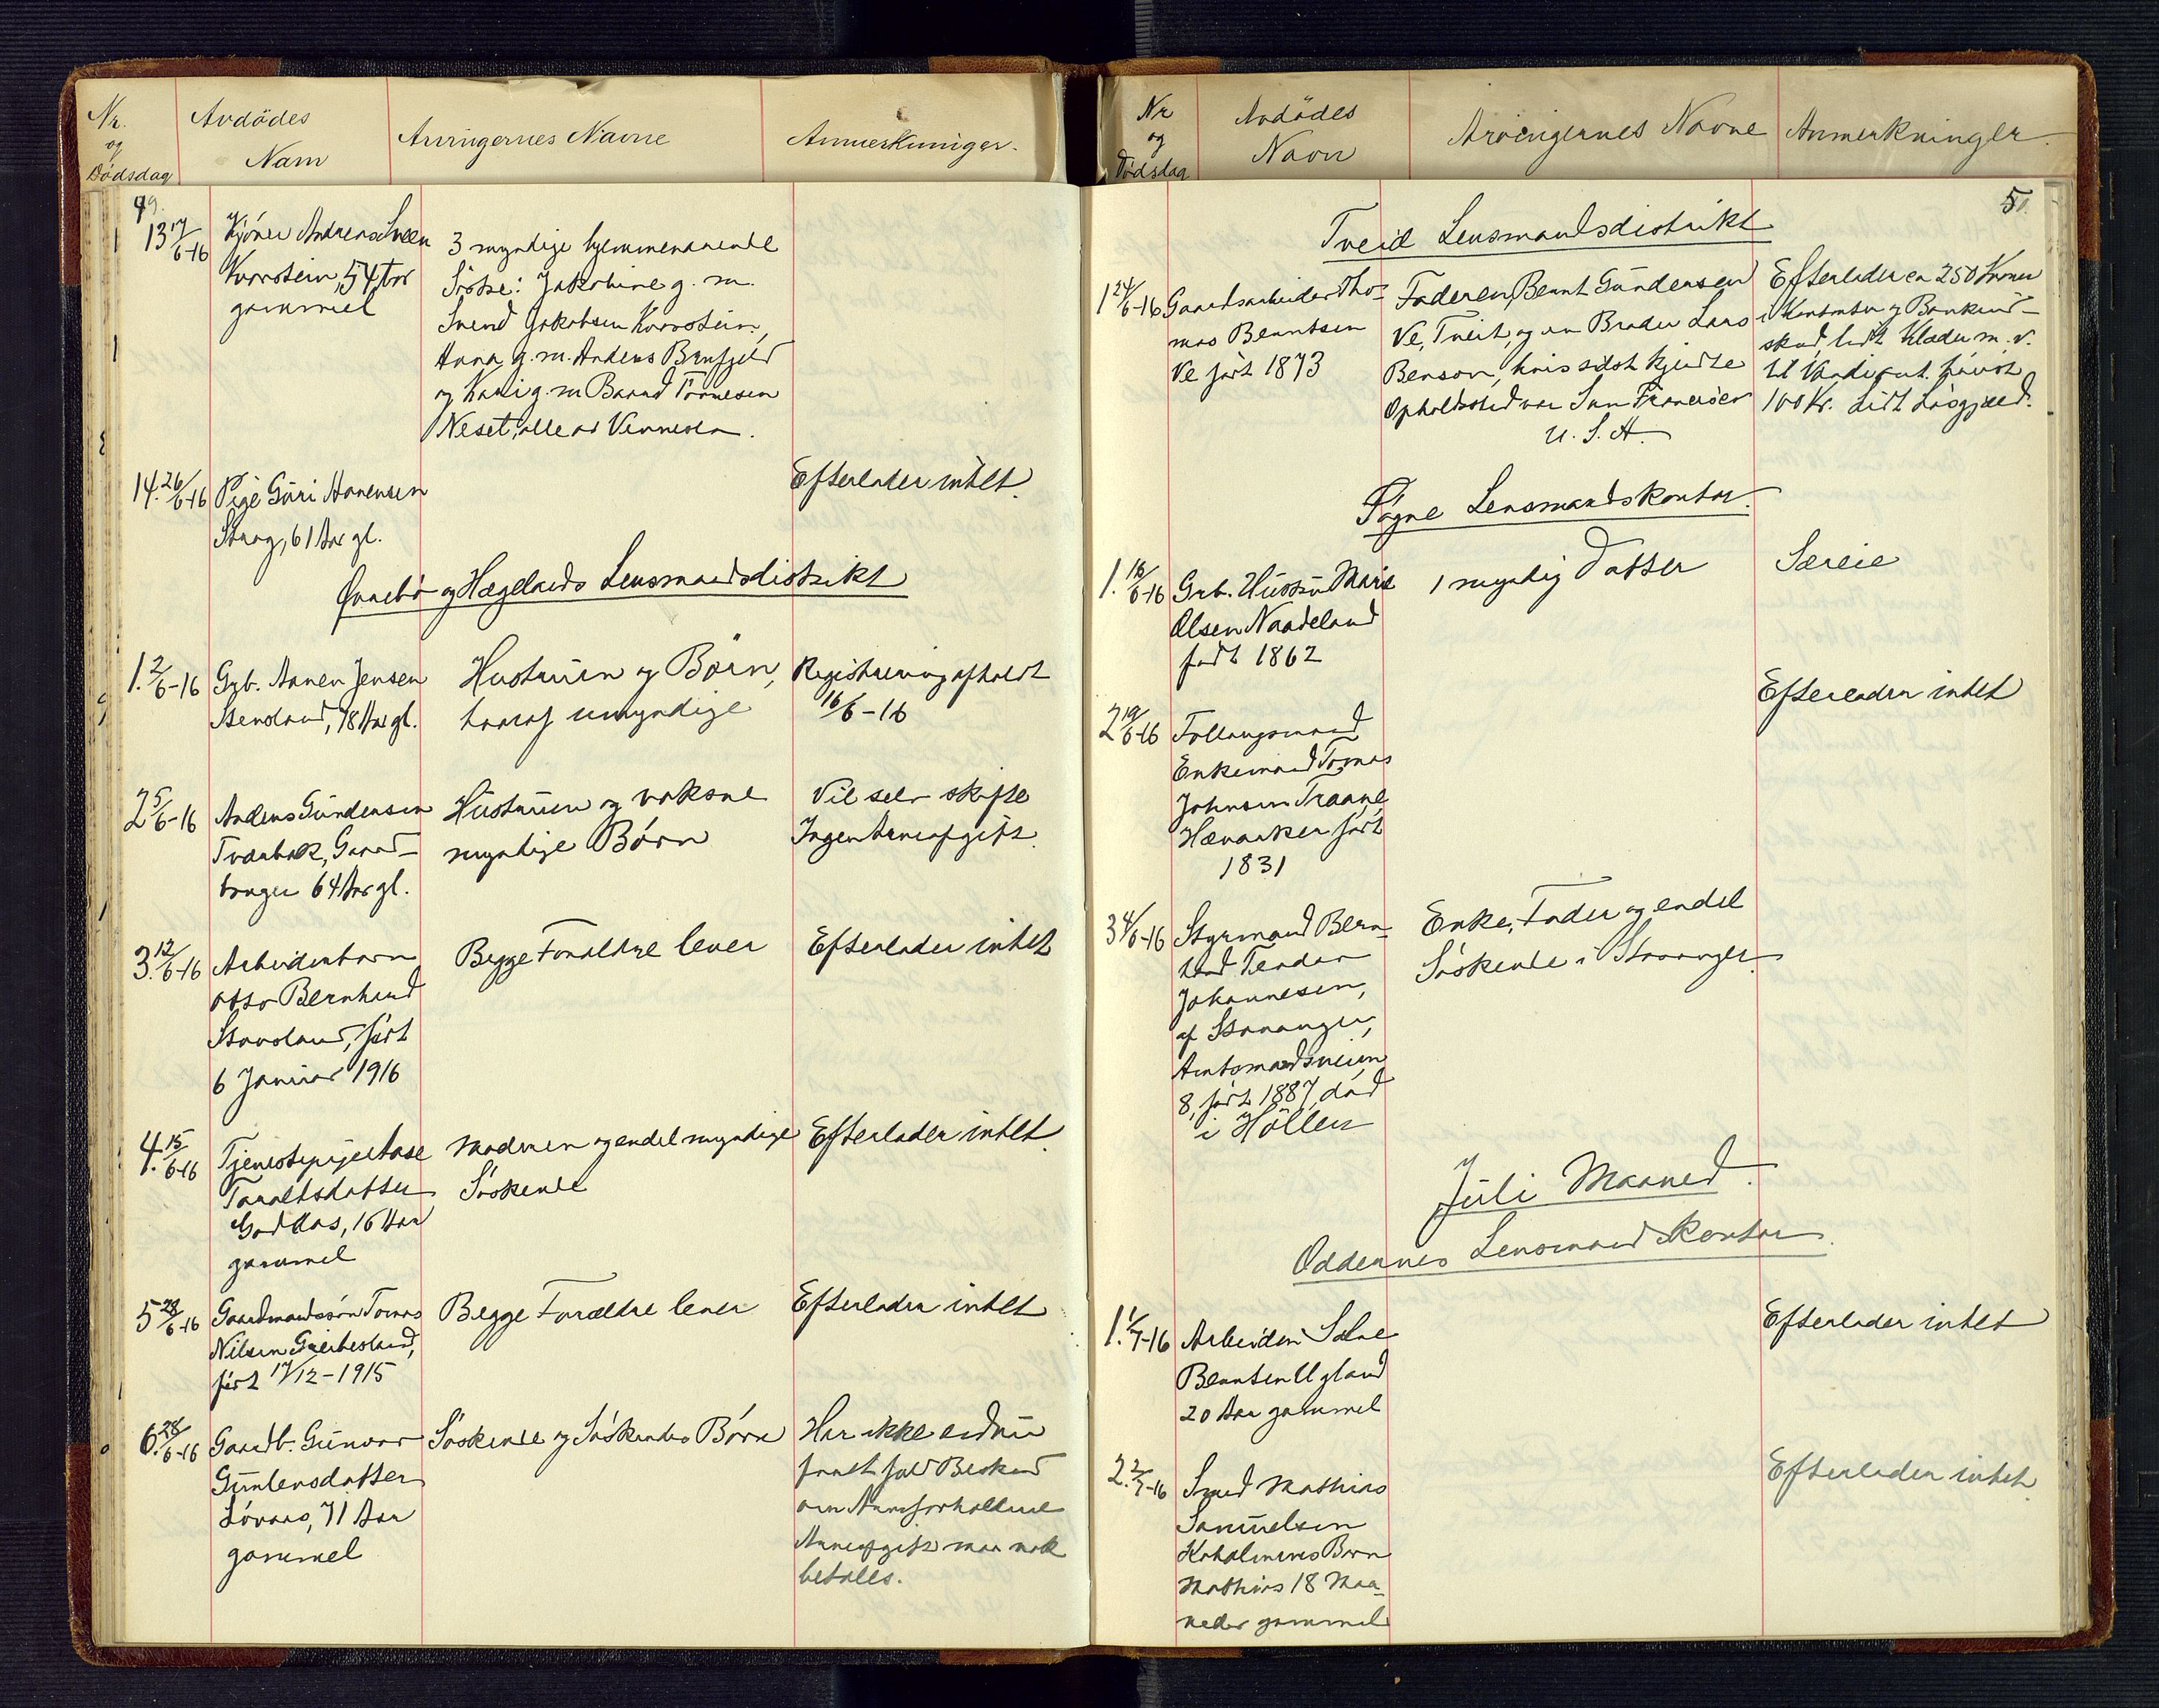 Nr. og Dødsdag
Avdödes Navn
Arvingernes Navne
Anmerkninger.
49.
13 17/6-16
Andreas
Kvarstein, 54 Aar
gammel
3 myndige hjemmeværende
Söstre: Jakobine g. m.
Svend Jakobsen Kvarstein,
Anna g. m. Anders
og Kari g. m. Baard Tomesen
Neset, alle av Vennesla.
14. 26/6-16
Pige Guri Hansen
61 Aar gl.
Efterlader intet.
Øvrebö og Hægelands Lensmandsdistrikt
1. 2/6-16
Grb. Aanen Jensen
Stensland, 78 Aar gl.
Hustruen og Børn,
hvoraf umyndige
Registrering afholdt
16/6-16
2 5/6-16
Anders Gundersen
Tværbak, Gaard-
bruger 64 Aar gl.
Hustruen og voksne
myndige Børn
Vil selv skifte
Ingen Arveafgift.
3. 12/6-16
Arbeiderbarn
Otto Bernhard
Stavsland, født
6 Januar 1916
Begge Forældre lever
Efterlader intet
4. 15/6-16
Tjenestepige Aase
Taraldsdatter
16 Aar
gammel
Moderen og endel myndige
Söskende
Efterlader intet.
5 28/6-16
Gaardmandssøn Tomas
Nilsen Greibesland,
født 17/12-1915
Begge Forældre lever
Efterlader intet
6. 28/6-16
Gaardb. Gunvor
Gunlensdatter
Lövaas, 71 Aar
gammel
Söskende og Söskendes Børn
Har ikke endnu
faaet fuld Beskeed
om Arveforholdene
Arveafgift maa nok
betales.
Nr og Dödsdag
Avdödes Navn
Arvingernes Navne
Anmerkninger.
51.
Tveid Lensmandsdistrikt
1 24/6-16
Gaardsarbeider Tho-
mas Berntsen
Ve født 1873
Faderen, Bernt Gundersen
Ve, Tveit, og en Broder Lars
Benson, hvis sidst kjendte
Opholdssted var San Francisco
U. S. A.
Efterlader ca 250 Kroner
i Kontanter og Bankind-
skud, lidt Klæder m. v.
til Værdi ant. høist
100 Kr. Lidt Løsgjæld.
Søgne Lensmandskontor.
1. 16/6-16
Grb. Hustru Marie
Olsen Naadeland
født 1862
1 myndig Datter
Særeie
2 19/6-16
Follaugsmand
Enkemand Tomas
Johnsen Traane
født
1831
Efterlader intet
3 4/6-16
Styrmand Bern-
hard Teodor
Johannesen,
af Stavanger,
Amtsmandsveien
8, født 1887, död
i Höllen
Enke, Fader og endel
Söskende i Stavanger.
Juli Maaned.
Oddernes Lensmandskontor.
1. 1/7-16
Arbeider Salve
Berntsen Ugland
20 Aar gammel
Efterlader intet
2. 2/7-16
Smed Mathias
Samuelsen
Barn
Mathias 18 Maa-
neder gammel
Efterlader intet.